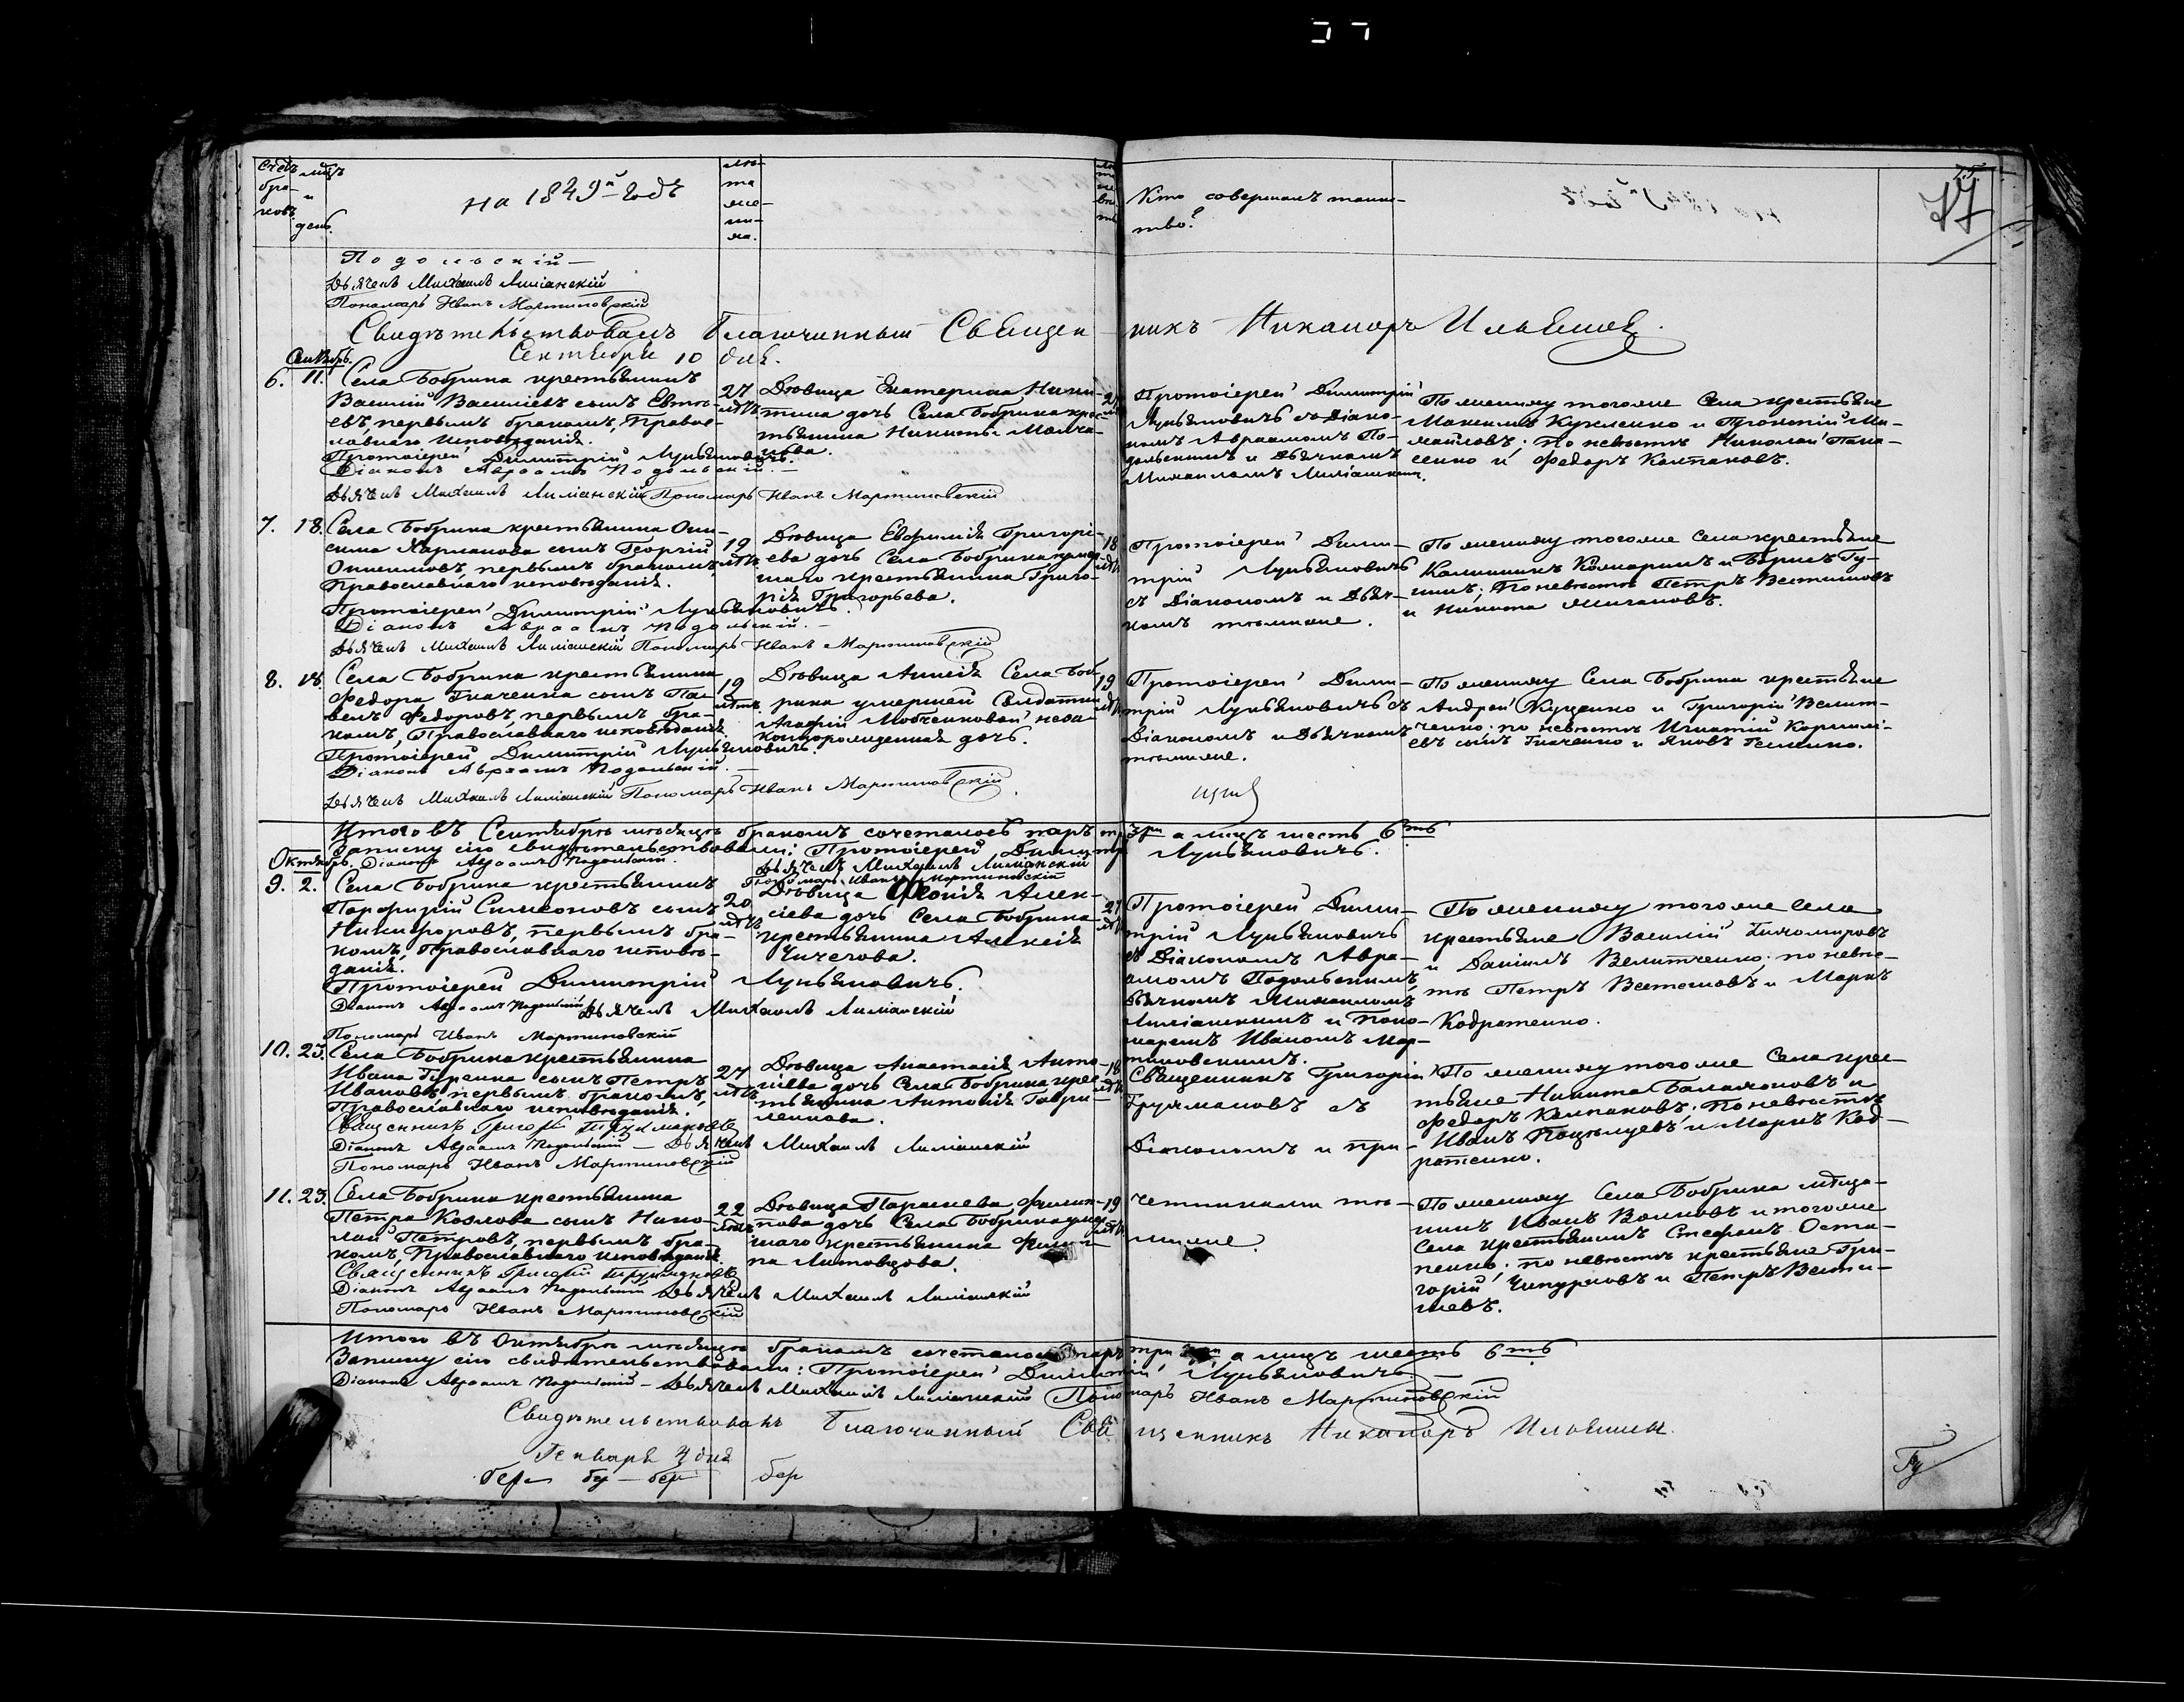 Счетъ браковъ.
мѣцъ и день.
на 1849й годъ
лѣта жениха.
лѣта невѣсты
Кто совершалъ таинство?
77
Подольскій —
Дьячекъ Михаилъ Лиманскій
Пономарь Иванъ Мартиновскій
Свидѣтельствовалъ Благочинный Священникъ Никаноръ Ильяшев
Сентября 10 дня.
Сентябрь.
6. 11. Села Бобрика крестьянинъ
Василій Василіевъ сынъ
первымъ бракомъ, Право-
славнаго исповѣданія.
Протоіерей Димитрій Лукьяновичъ.
Діаконъ Авраамъ Подольскій. —
Дьячекъ Михаилъ Лиманскій Пономарь Иванъ Мартиновскій
27 лѣтъ
Дѣвица Екатерина Ники-
тина дочь Села Бобрика крес-
тьянина Никиты
Протоіерей Димитрій
Лукьяновичъ съ Діако-
номъ Авраамомъ По-
дольскимъ и Дьячкомъ
Михаиломъ Лиманскимъ.
По жениху тогоже Села крестьяне
Максимъ и Прокопій Ми-
хайловъ; по невѣстѣ Николай Пана-
сенко и Федоръ Колпаковъ.
7. 18. Села Бобрика крестьянина Они-
сима сынъ Георгій
Онисимовъ, первымъ бракомъ,
Православнаго исповѣданія.
Протоіерей Димитрій Лукьяновичъ.
Діаконъ Авраамъ Подольскій. —
Дьячекъ Михаилъ Лиманскій Пономарь Иванъ Мартиновскій
19 лѣтъ
Дѣвица Евфимія Григорі-
ева дочь Села Бобрика умер-
шаго крестьянина Григо-
рія Григорьева.
18 лѣтъ
Протоіерей Дими-
трій Лукьяновичъ
съ Діакономъ и Дьяч-
комъ тѣмиже.
По жениху тогоже Села крестьяне
и Борисъ Гу-
по невѣстѣ Петръ
и Никита
8. 18. Села Бобрика крестьянина
Федора Ткаченка сынъ Па-
велъ Федоровъ, первымъ бра-
комъ, Православнаго исповѣданія.
Протоіерей Димитрій Лукьяновичъ.
Діаконъ Авраамъ Подольскій. —
Дьячекъ Михаилъ Лиманскій Пономарь Иванъ Мартиновскій
19 лѣтъ
Дѣвица Села Боб-
рика умершей Солдатки
Агафіи незаконнорожденная дочь.
19 лѣтъ
Протоіерей Дими-
трій Лукьяновичъ съ
Діакономъ и Дьячкомъ
тѣмиже.
По жениху Села Бобрика крестьяне
Андрей Куценко и Григорій Велит-
ченко; по невѣстѣ Игнатій Корнилі-
евъ сынъ Ткаченко и Яковъ
Итого въ Сентябрѣ мѣсяцѣ бракомъ сочеталось паръ три а лицъ шесть 6ть
Записку сію свидѣтельствовали: Протоіерей Димитрій Лукьяновичъ.
Діаконъ Авраамъ Подольскій.
Дьячекъ Михаилъ Лиманскій
Пономарь Иванъ Мартиновскій
Октябрь.
9. 2. Села Бобрика крестьянинъ
Порфирій Симеоновъ сынъ
Никифоровъ, первымъ бра-
комъ, Православнаго исповѣ-
данія.
Протоіерей Димитрій Лукьяновичъ.
Діаконъ Авраамъ Подольскій Дьячекъ Михаилъ Лиманскій
Пономарь Иванъ Мартиновскій
20 лѣтъ
Дѣвица Алек-
сіева дочь Села Бобрика
крестьянина Алексія
Чичегова.
21 лѣтъ
Протоіерей Дими-
трій Лукьяновичъ
съ Діакономъ Авра-
амомъ Подольскимъ,
Дьячкомъ Михаиломъ
Лиманскимъ и Поно-
маремъ Иваномъ Мар-
тиновскимъ.
По жениху тогоже Села
крестьяне Василій Тихомировъ
и Даніилъ Велитченко; по невѣс-
тѣ Петръ и Марко
Кодратенко.
10. 23. Села Бобрика крестьянина
Ивана сынъ Петръ
Ивановъ, первымъ бракомъ,
Православнаго исповѣданія.
Священникъ Григорій
Діаконъ Авраамъ Подольскій — Дьячекъ Михаилъ Лиманскій
Пономарь Иванъ Мартиновскій
27 лѣтъ
Дѣвица Анастасія Анто-
ніева дочь Села Бобрика крес-
тьянина Антонія Гаври-
ленкова.
18 лѣтъ
Священникъ Григорій
съ
Діакономъ и при-
По жениху тогоже Села крес-
тьяне Никита и
Федоръ Колпаковъ; по невѣстѣ
Иванъ Поцѣлуевъ и Марко Код-
ратенко.
11. 23. Села Бобрика крестьянина
Петра Козлова сынъ Нико-
лай Петровъ, первымъ бра-
комъ, Православнаго исповѣданія.
Священникъ Григорій
Діаконъ Авраамъ Подольскій Дьячекъ Михаилъ Лиманскій
Пономарь Иванъ Мартиновскій
22 лѣтъ
Дѣвица Параскева Филип-
пова дочь Села Бобрика умер-
шаго крестьянина Филип-
па Литовцова.
19 лѣтъ
четниками тѣ-
миже.
По жениху Села Бобрика мѣща-
нинъ Иванъ Волковъ и тогоже
Села крестьянинъ Стефанъ Оста-
пенко; по невѣстѣ крестьяне Гри-
горій Чипурновъ и Петръ
Итого въ Октябрѣ мѣсяцѣ бракомъ сочеталось паръ три а лицъ шесть 6ть
Записку сію свидѣтельствовали: Протоіерей Димитрій Лукьяновичъ. —
Діаконъ Авраамъ Подольскій — Дьячекъ Михаилъ Лиманскій Пономарь Иванъ Мартиновскій
Свидѣтельствовалъ Благочинный Священникъ Никаноръ Ильяшев
Генваря 4 дня